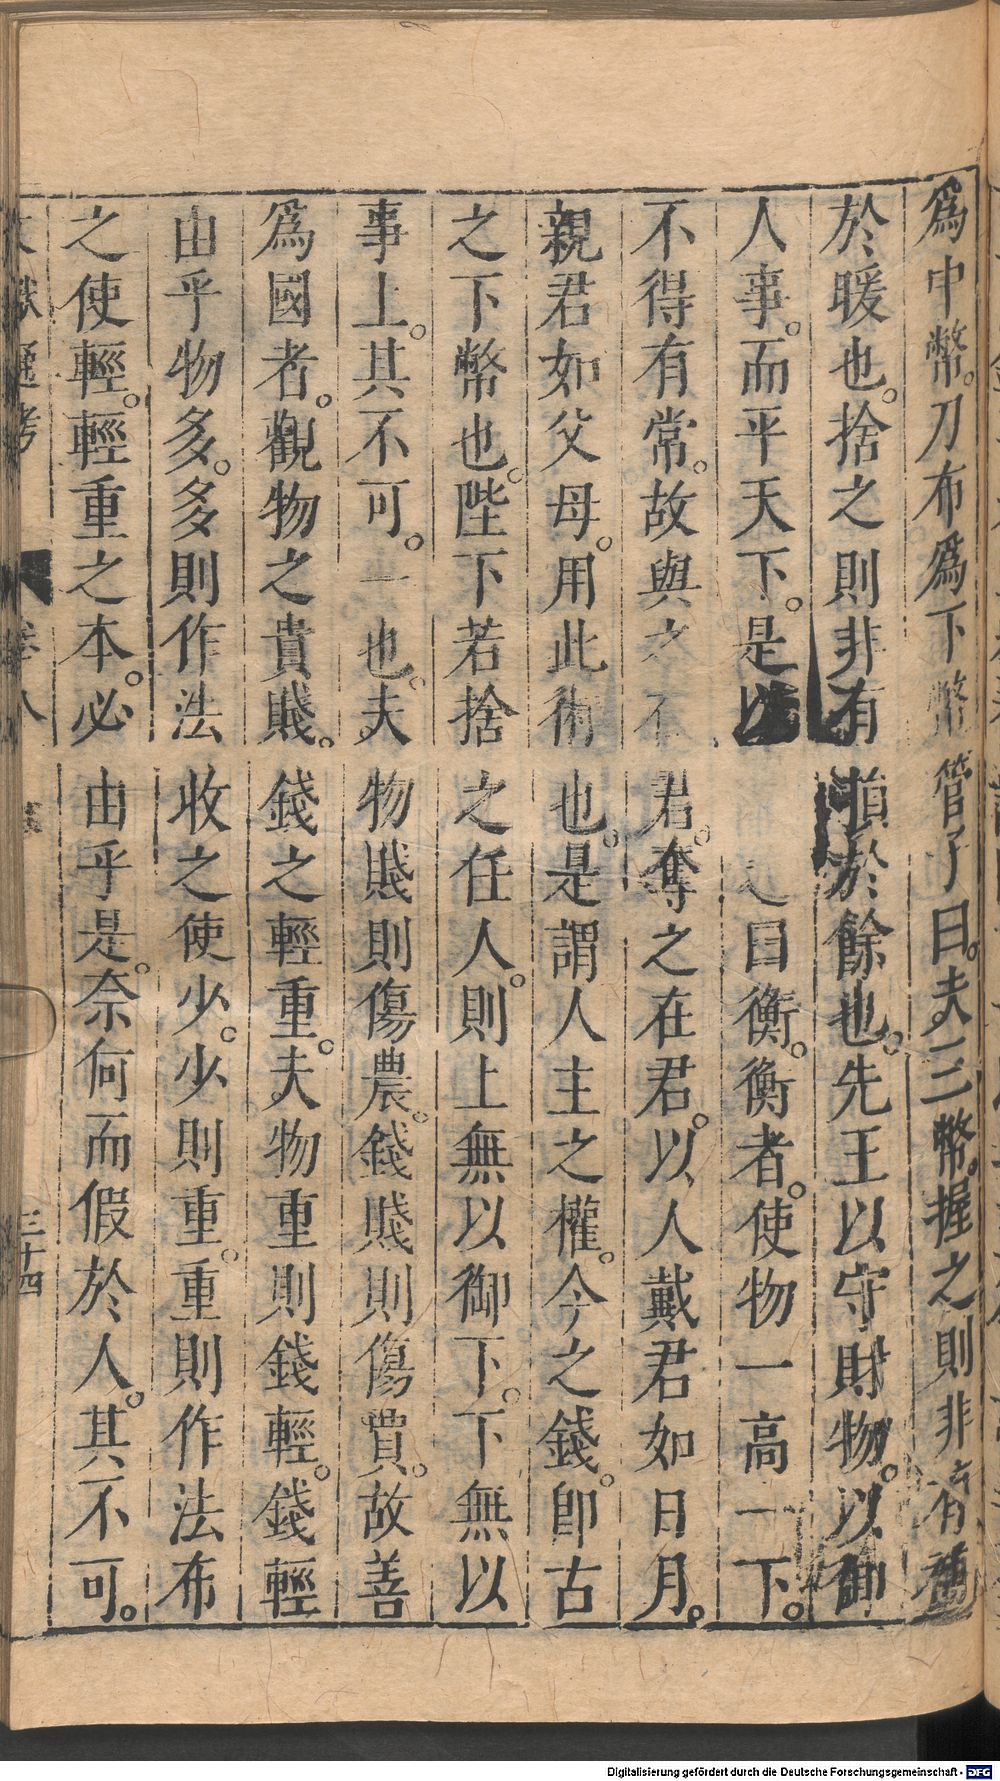 爲中幣。刀布爲下幣管子曰。夫三幣。握之則非有補
於暖也。捨之則非有損於餘也。先王以守財物。以御
人事。而平天下。是以之曰衡。衡者。使物一高一下。
不得有常。故與之不君。奪之在君。以人戴君如日月。
親君如父母。用此術也。是謂人主之權。今之錢。卽古
之下幣也。陛下若捨之任人。則上無以御下。下無以
事上。其不可。一也。夫物賤則傷農。錢賤則傷賈。故善
爲國者。觀物之貴賤。錢之輕重。夫物重則錢輕。錢輕
由乎物多。多則作法收之使少。少則重。重則作法布
之使輕。輕重之本。必由乎是。奈何而假於人。其不可。
文獻通考
卷八
三十四
Digitalisierung gefördert durch die Deutsche Forschungsgemeinschaft - DFG